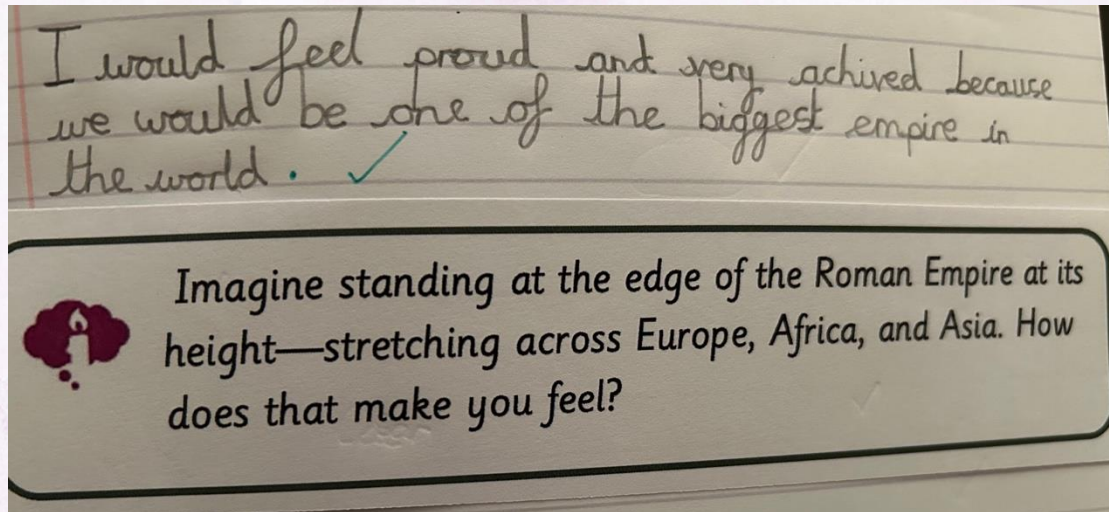 I would feel proud and very achived because
we would be one of the biggest empire in
the world.
Imagine standing at the edge of the Roman Empire at its
height—stretching across Europe, Africa, and Asia. How
does that make you feel?